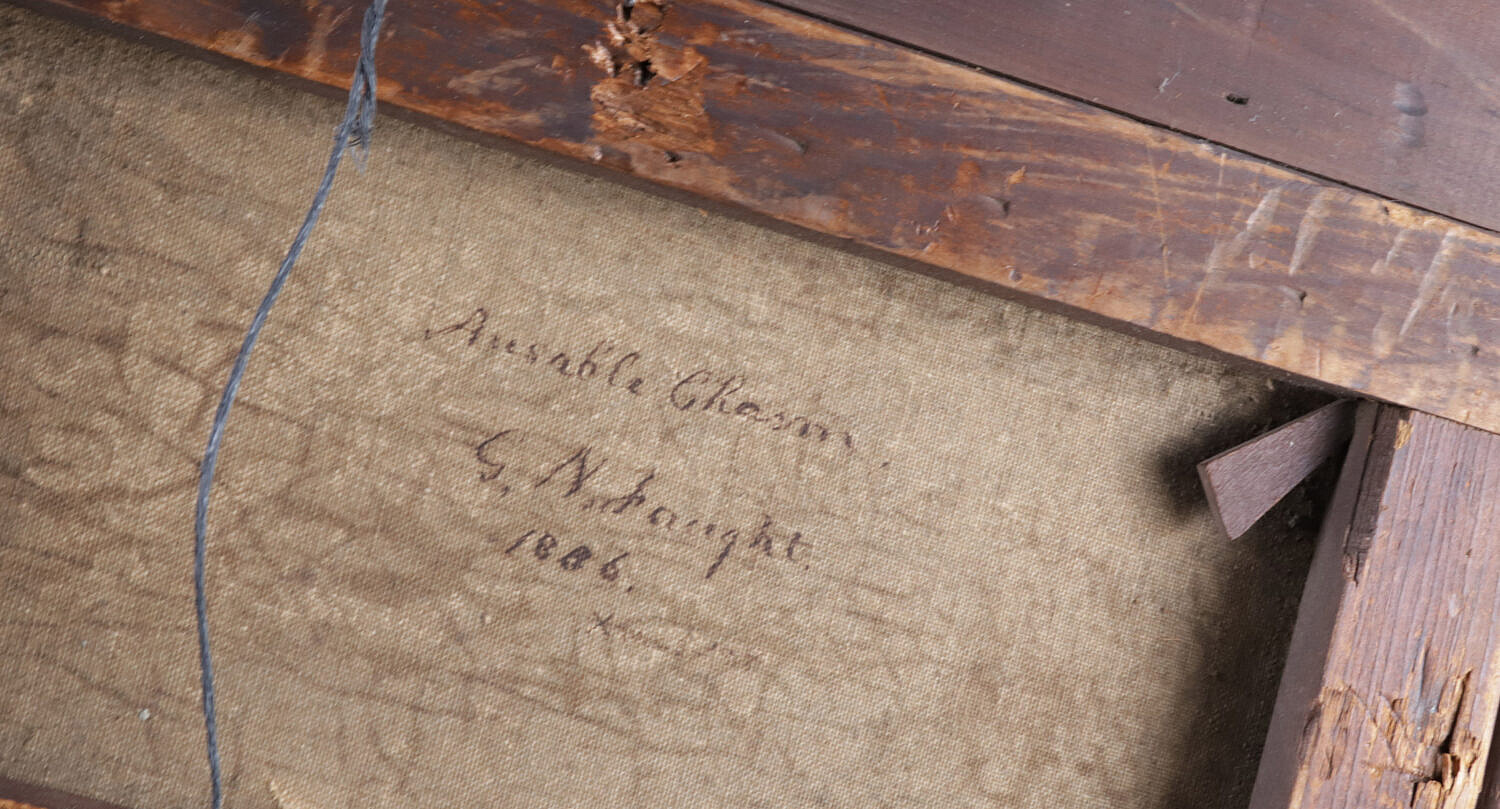 Ausable Chasm.
G. N. Faught.
1886.